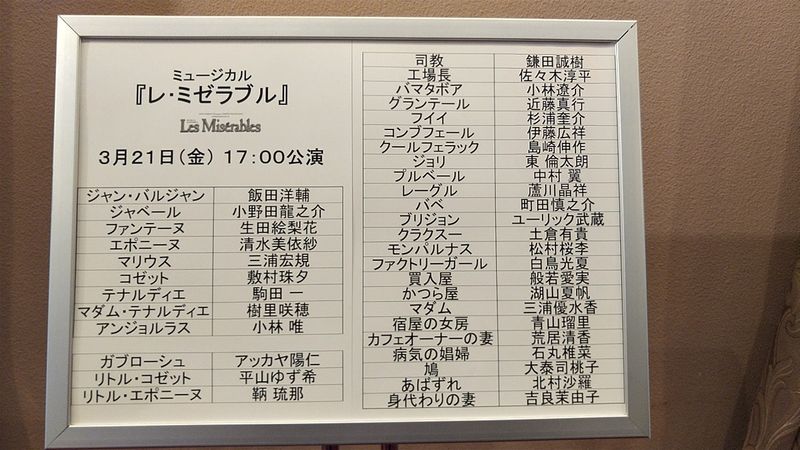 ミュージカル
『レ・ミゼラブル』
Les Misérables
3月21日(金) 17:00公演
ジャン・バルジャン 飯田洋輔
ジャベール 小野田龍之介
ファンテーヌ 生田絵梨花
エポニーヌ 清水美依紗
マリウス 三浦宏規
コゼット 敷村珠夕
テナルディエ 駒田 一
マダム・テナルディエ 樹里咲穂
アンジョルラス 小林 唯
ガブローシュ アッカヤ陽仁
リトル・コゼット 平山ゆず希
リトル・エポニーヌ 鞆 琉那
司教 鎌田誠樹
工場長 佐々木淳平
バマタボア 小林遼介
グランテール 近藤真行
フイイ 杉浦奎介
コンブフェール 伊藤広祥
クールフェラック 島崎伸作
ジョリ 東 倫太朗
プルベール 中村 翼
レーグル 蘆川晶祥
バベ 町田慎之介
ブリジョン ユーリック武蔵
クラクスー 土倉有貴
モンパルナス 松村桜李
ファクトリーガール 白鳥光夏
買入屋 般若愛実
かつら屋 湖山夏帆
マダム 三浦優水香
宿屋の女房 青山瑠里
カフェオーナーの妻 荒居清香
病気の娼婦 石丸椎菜
鳩 大泰司桃子
あばずれ 北村沙羅
身代わりの妻 吉良茉由子